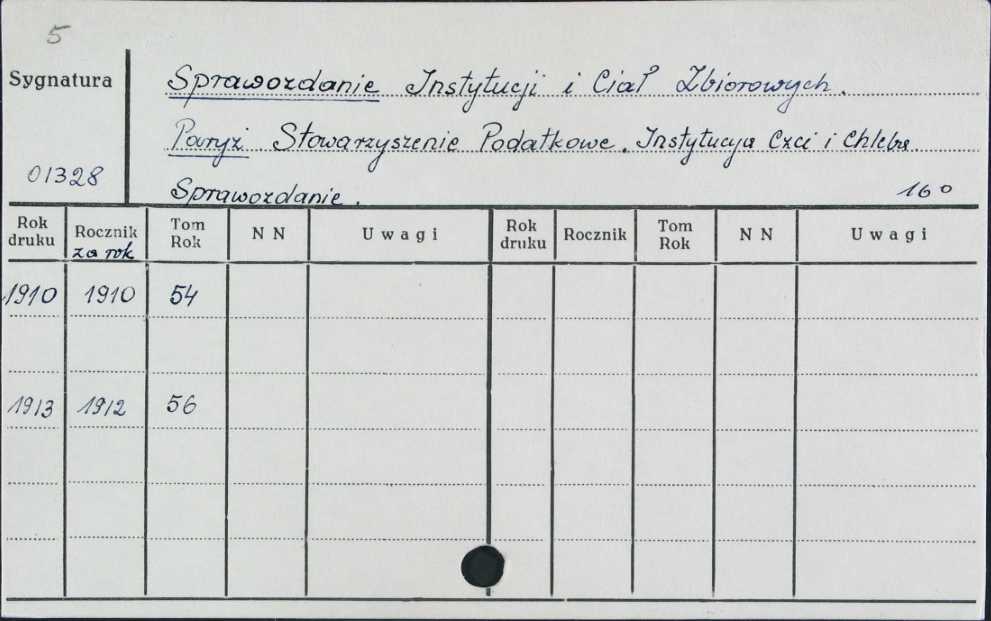 5
Sygnatura
Sprawozdanie Instytucji i Ciał Zbiorowych.
Paryż Stowarzyszenie Podatkowe. Instytucya Czci i Chleba
01328
Sprawozdanie. 16°
Rok druku Rocznik za rok Tom Rok N N Uwagi Rok druku Rocznik Tom Rok N N Uwagi
1910 1910 54
1913 1912 56